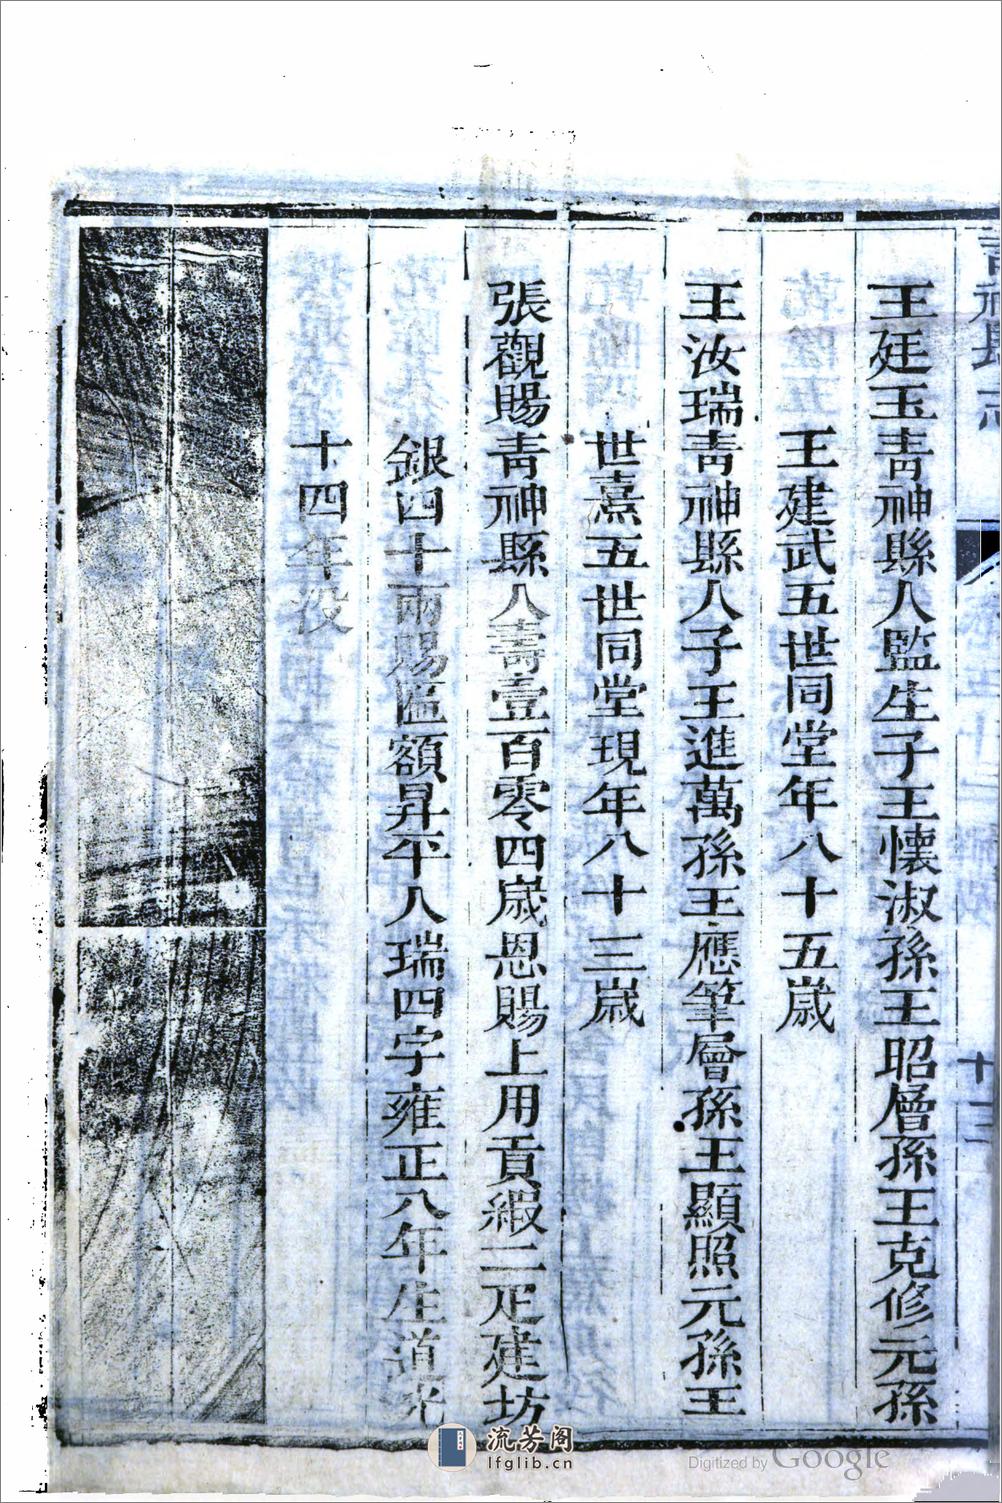 青神縣志
十三
王廷玉青神縣人監生子王懷淑孫王昭層孫王克修元孫
王建武五世同堂年八十五歲
王汝瑞青神縣人子王進萬孫王應筆層孫王顯照元孫王
世熹五世同堂現年八十三歲
張觀賜青神縣人壽壹百零四歲恩賜上用貢緞二疋建坊
銀四十兩賜匾額昇平人瑞四字雍正八年生道光
十四年没
流芳阁
lfglib.cn
Digitized by Google